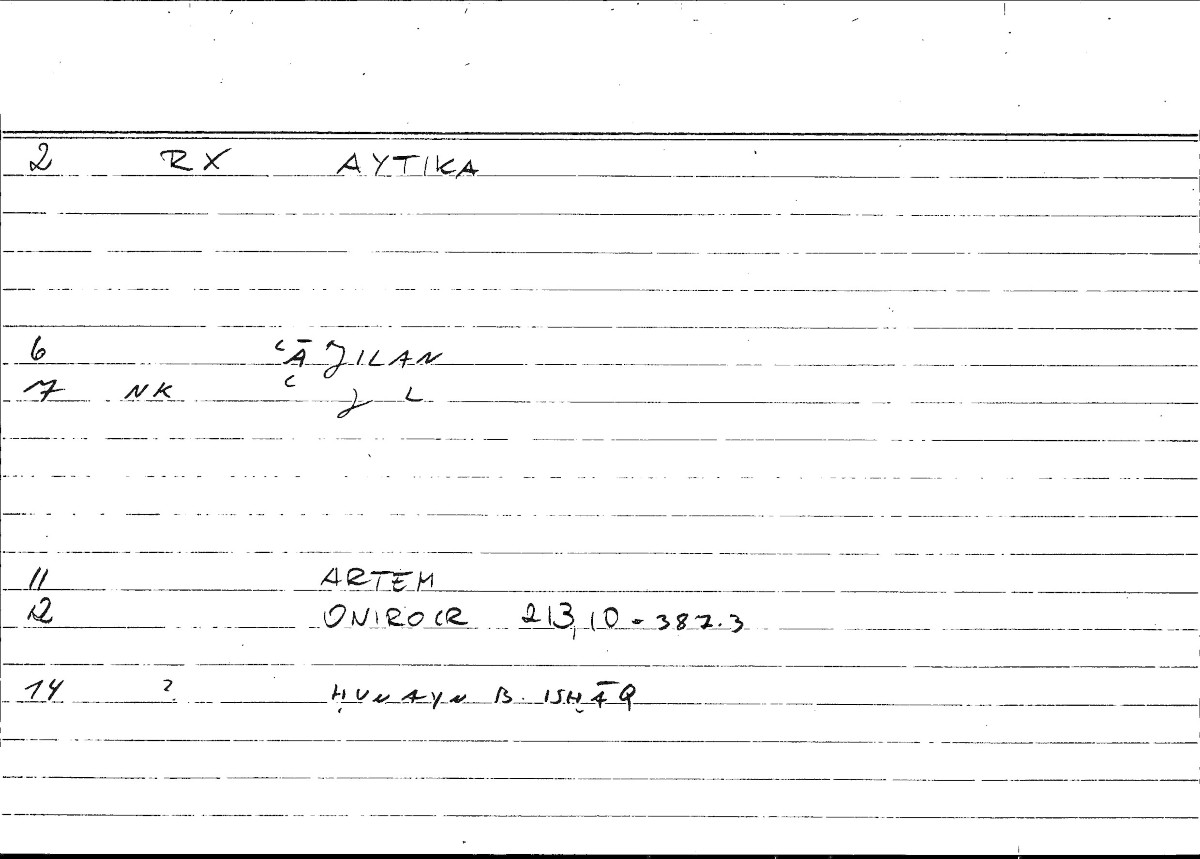 2 RX AYTIKA
6 ʿĀJILAN
7 NK ʿJL
11 ARTEM
12 ONIROCR 213,10-387.3
14 ? ḤUNAYN B. ISḤĀQ